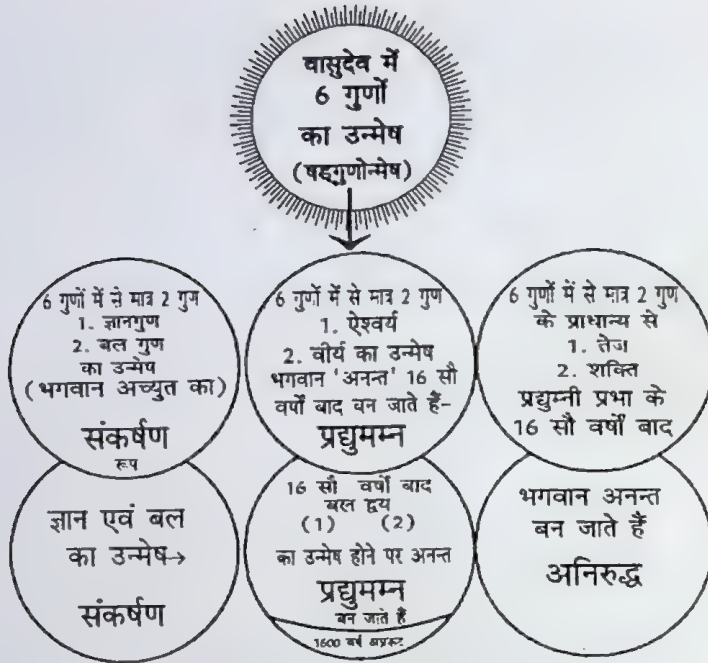 वासुदेव में
6 गुणों
का उन्मेष
(षड्गुणोन्मेष)
6 गुणों में से मात्र 2 गुण
1. ज्ञानगुण
2. बल गुण
का उन्मेष
(भगवान अच्युत का)
संकर्षण
रूप
6 गुणों में से मात्र 2 गुण
1. ऐश्वर्य
2. वीर्य का उन्मेष
भगवान 'अनन्त' 16 सौ
वर्षों बाद बन जाते हैं-
प्रद्युमम्न
6 गुणों में से मात्र 2 गुण
के प्राधान्य से
1. तेज
2. शक्ति
प्रद्युम्नी प्रभा के
16 सौ वर्षों बाद
ज्ञान एवं बल
का उन्मेष→
संकर्षण
16 सौ वर्षों बाद
बल द्वय
(1) (2)
का उन्मेष होने पर अनन्त
प्रद्युमम्न
बन जाते हैं
1600 वर्ष
भगवान अनन्त
बन जाते हैं
अनिरुद्ध